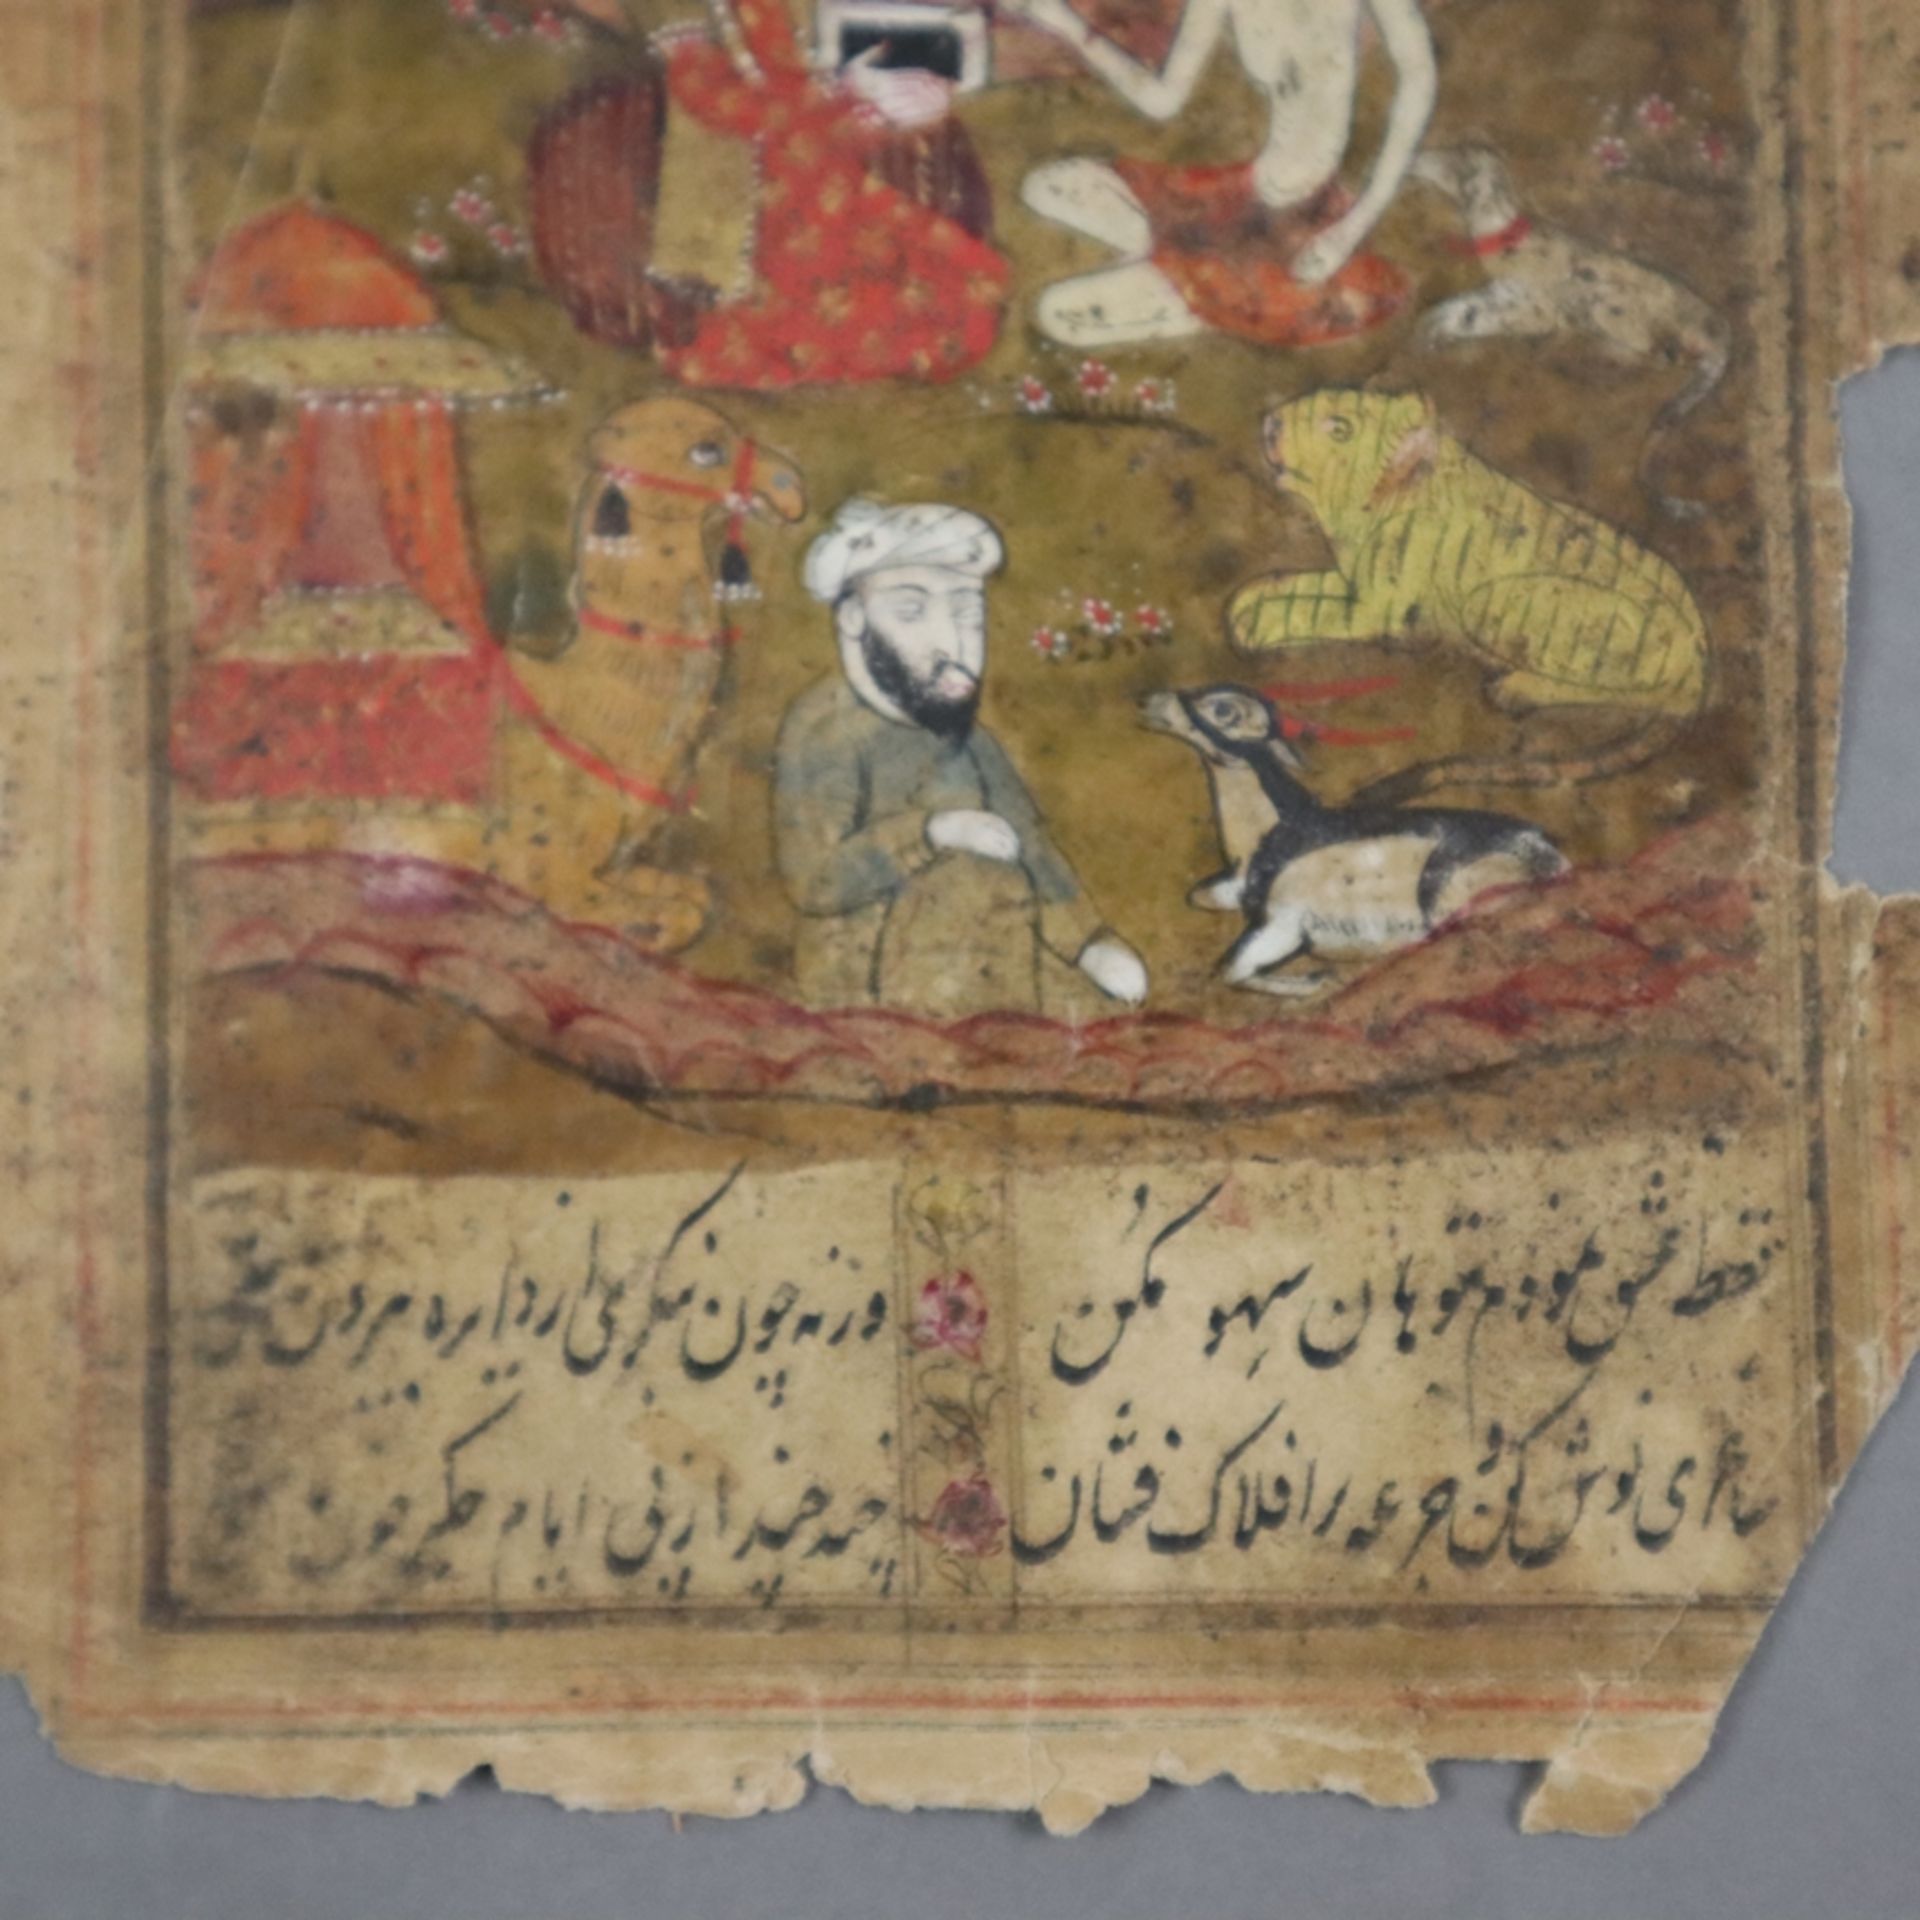 نقطه عشق نمودم بتو هان سهو مکن ورنه چون بنگری از دایره بیرون
ساغری نوش کن و جرعه بر افلاک فشان چند چند از پی ایام جگر خون